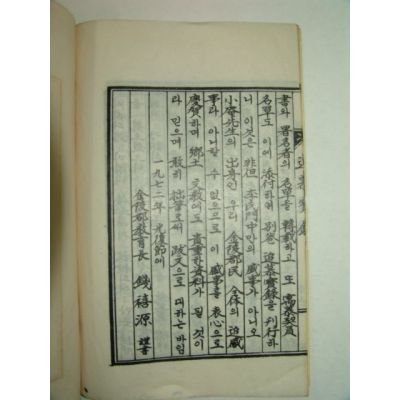 書와 署名者의 名單을 轉載하고 또 慕契員
名單도 이에 添付하여 別卷 追慕實錄을 刊行하
니 이것은 非但 門中만의 盛事가 아니오
小庵先生의 出身인 우리 金陵郡民 全体의 盛
事라 아니할 수 없으므로 이 盛事를 衷心으로
慶賀하며 鄕土 文敎에도 貴重한 資料가 될 것이
라 믿으며 敢히 拙筆로써 跋文으로 대하는 바임
一九七二年 光復節에
金陵郡敎育長 錢禧源 謹書